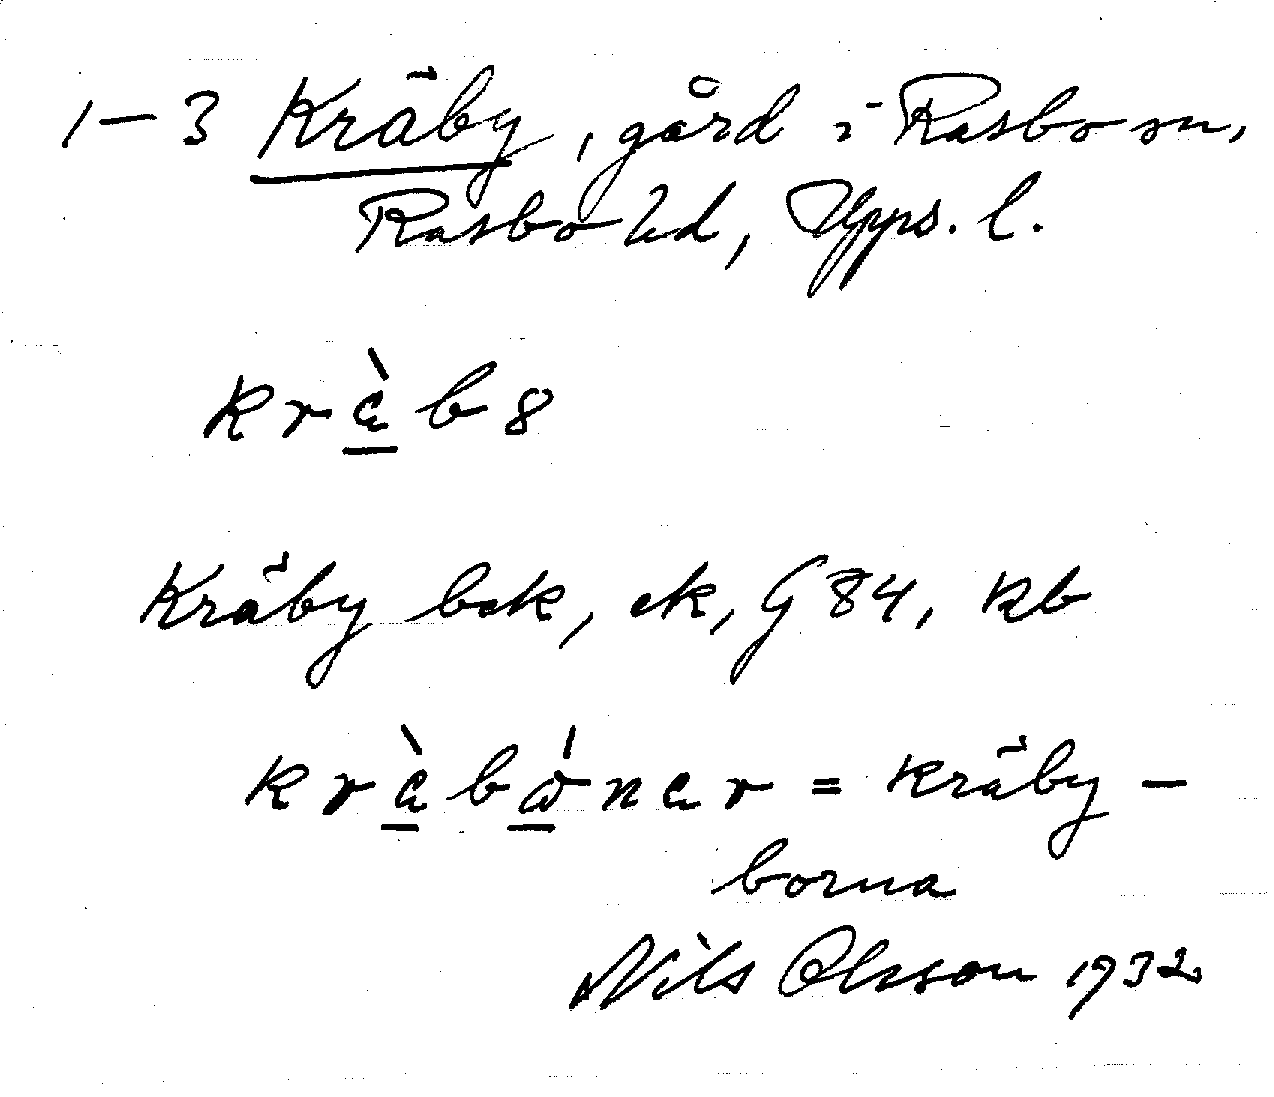 1–3 Kräby, gård i Rasbo sn,
Rasbo hd, Upps. l.
kr<u>ὰ</u>b8
Kräby bek, ek, G 84, kb
kràbώnar = kräby-
borna
Nils Olsson 1932